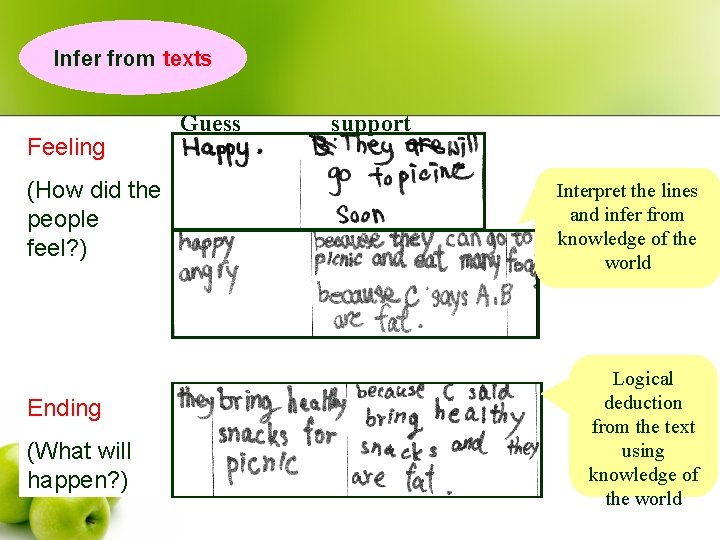 Infer from texts
Guess support
Feeling
(How did the
people
feel? )
Happy. B: They are will
go to picine
Soon
happy because they can go to
angry picnic and eat many foo
because C says A.B
are fat.
Interpret the lines
and infer from
knowledge of the
world
Ending
(What will
happen? )
they bring healthy
snacks for
picnic
because C said
bring healthy
snacks and they
are fat.
Logical
deduction
from the text
using
knowledge of
the world